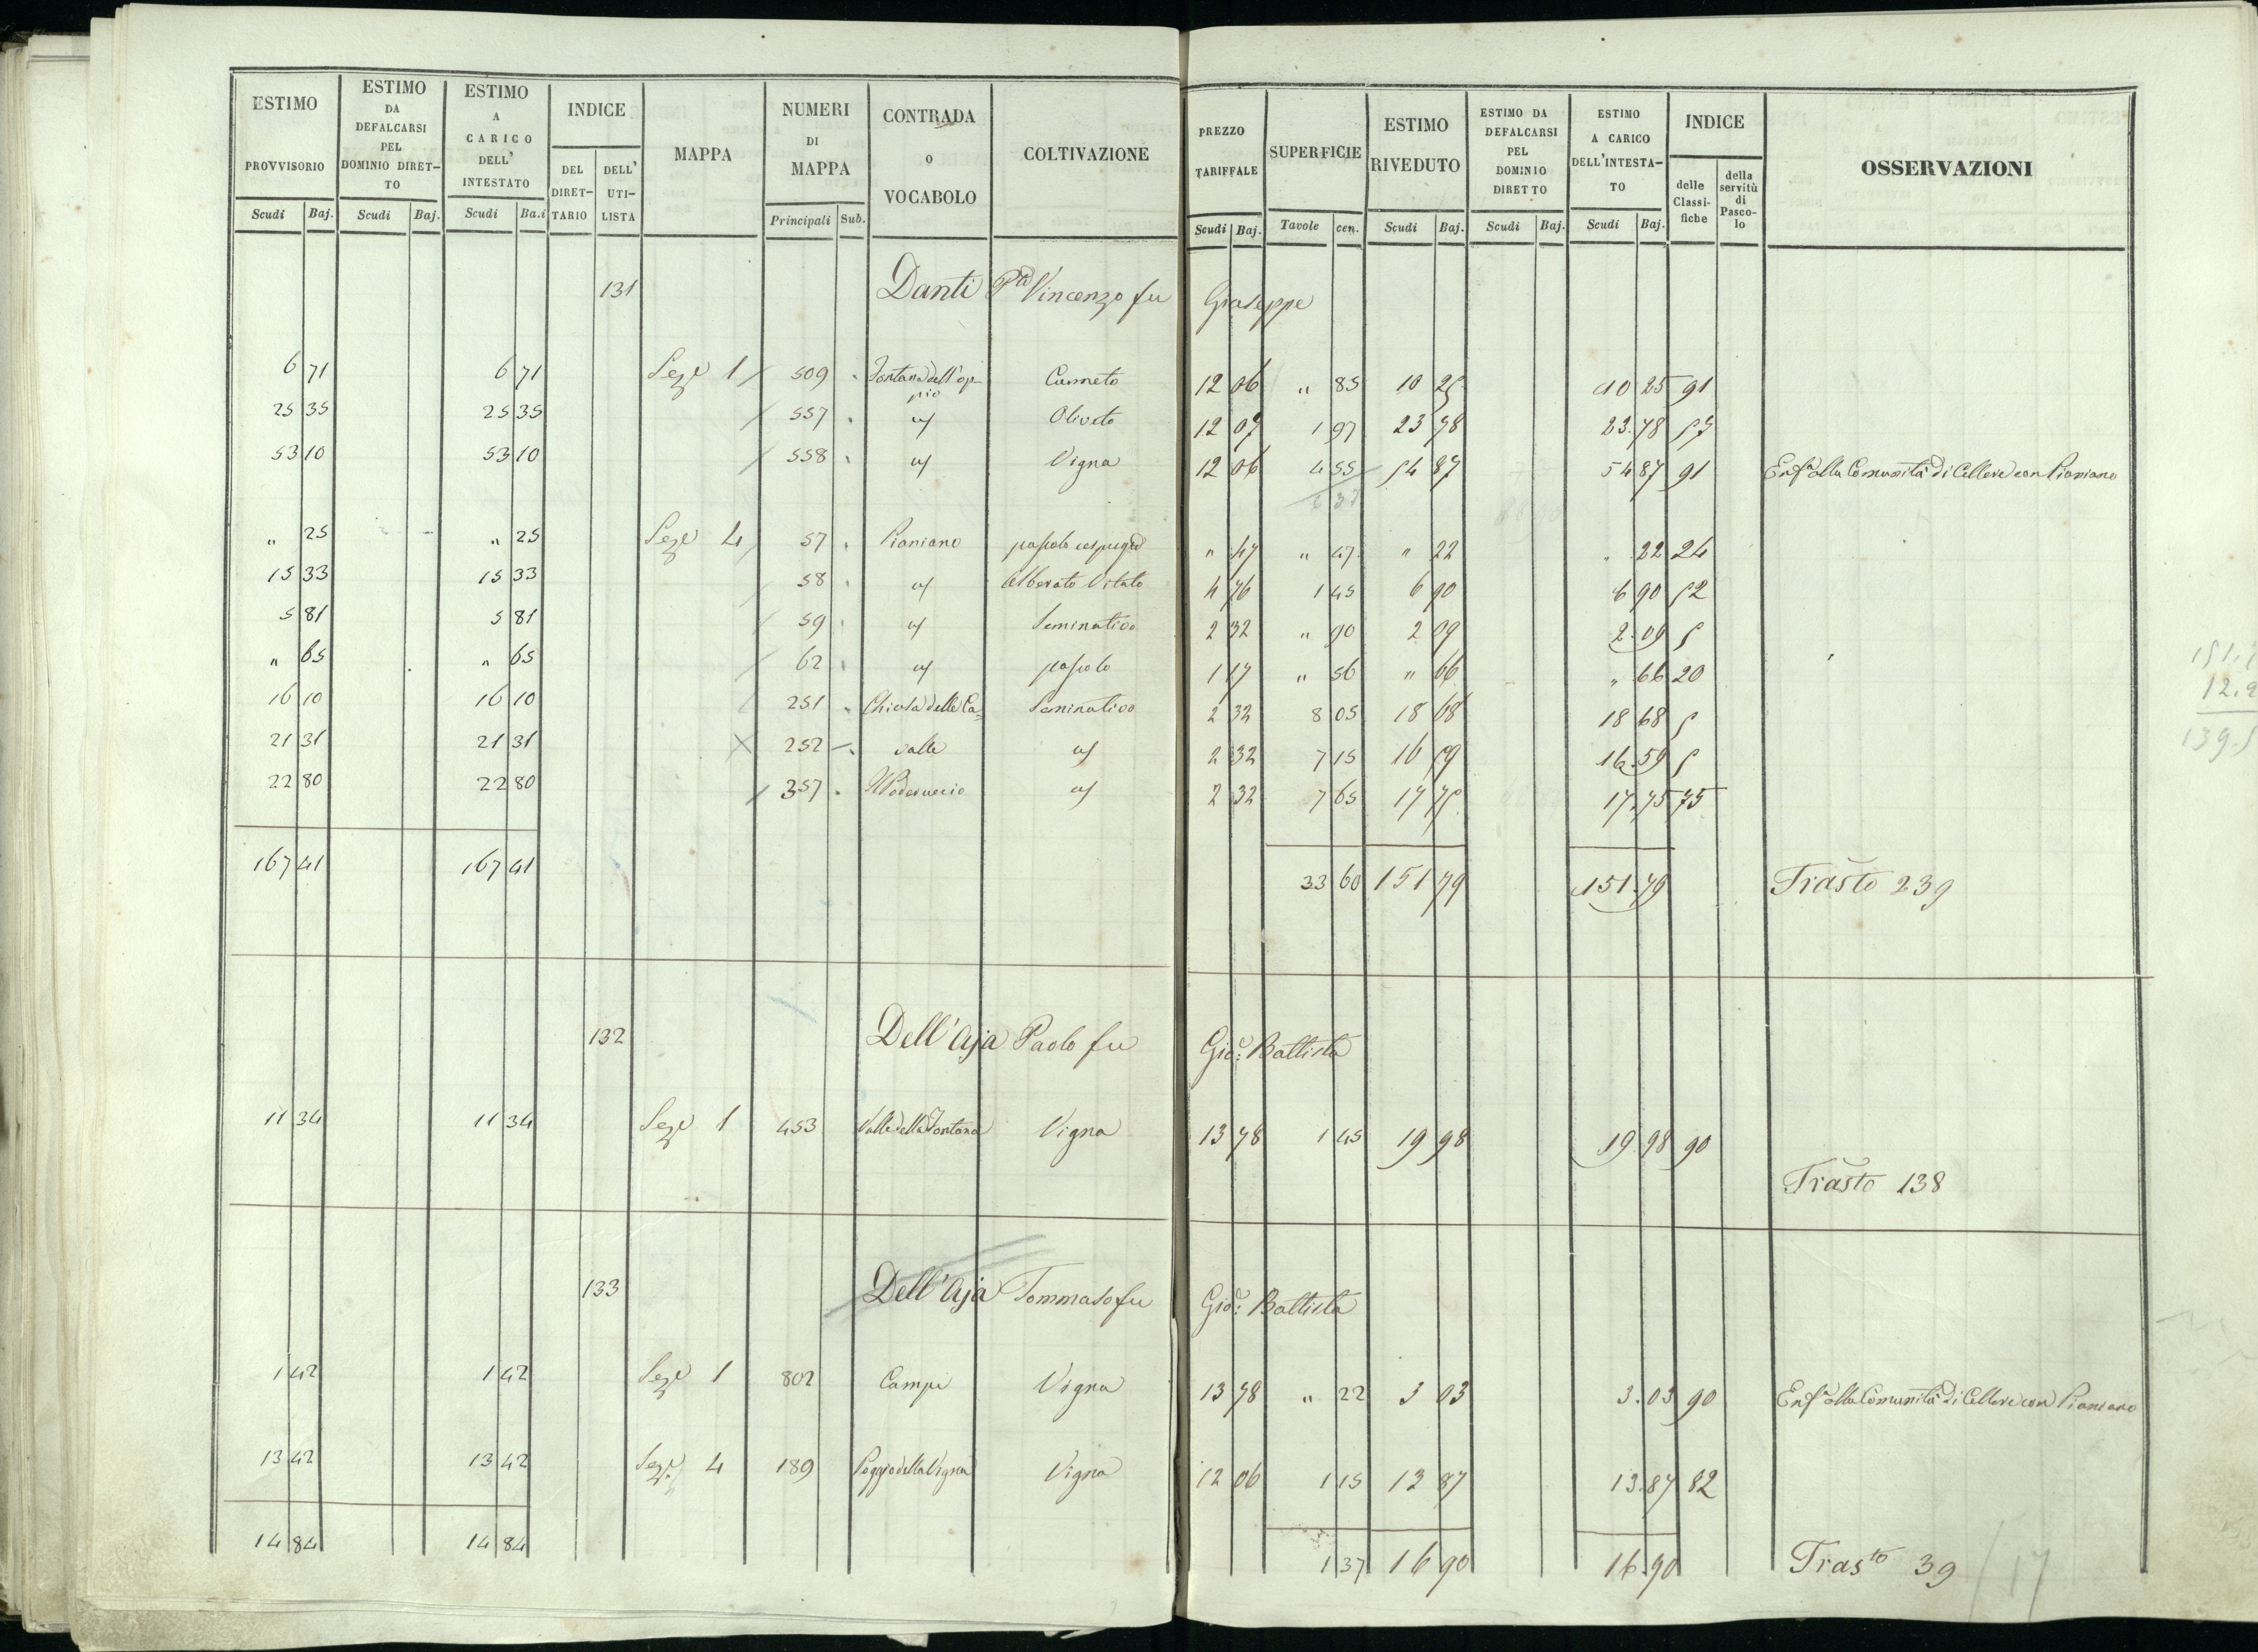 ESTIMO PROVVISORIO Scudi Baj. | ESTIMO DA DEFALCARSI PEL DOMINIO DIRETTO Scudi Baj. | ESTIMO A CARICO DELL' INTESTATO Scudi Ba.i | INDICE DEL DIRETTARIO | DELL' UTILISTA | MAPPA | NUMERI DI MAPPA Principali Sub. | CONTRADA O VOCABOLO | COLTIVAZIONE | PREZZO TARIFFALE Scudi Baj. | SUPERFICIE Tavole cen. | ESTIMO RIVEDUTO Scudi Baj. | ESTIMO DA DEFALCARSI PEL DOMINIO DIRETTO Scudi Baj. | ESTIMO A CARICO DELL'INTESTATO Scudi Baj. | INDICE delle Classifiche | della servitù di Pascolo | OSSERVAZIONI
131 Danti Vincenzo fu Giuseppe
6 71 6 71 Seze 1 509 Fontana dell'oppio Canneto 12 06 " 85 10 25 10 25 91
25 35 25 35 557 Oliveto 12 07 1 97 23 78 23.78 57
53 10 53 10 558 Vigna 12 06 4 55 54 87 54 87 91 Enfa alla Comunità di Cellere con Pianiano
" 25 " 25 Seze 4 57 Pianiano pascolo " 47 " 47 " 22 22 24
15 33 15 33 58 Alberato Vitato 4 76 1 45 6 90 6 90 52
5 81 5 81 59 Seminativo 2 32 " 90 2 09 2.09 5
" 65 " 65 62 pascolo 1 17 " 56 " 66 " 66 20
16 10 16 10 251 Chiusa delle Ca= Seminativo 2 32 8 05 18 68 18 68 5
21 31 21 31 252 valle 2 32 7 15 16 59 16.59 5
22 80 22 80 357 2 32 7 65 17 75 17.75 75
167 41 167 41 33 60 151 79 151.79 Trasto 239
132 Dell'Aja Paolo fu Gio: Battista
11 34 11 34 Seze 1 453 Valle della Fontana Vigna 13 78 1 45 19 98 19 98 90
Trasto 138
133 Dell'Aja Tommaso fu Gio: Battista
1 42 1 42 Seze 1 802 Campe Vigna 13 78 " 22 3 03 3.03 90 Enfa alla Comunità di Cellere con Pianiano
13 42 13 42 Seze 4 189 Poggio della Vigna Vigna 12 06 1 15 13 87 13.87 82
14 84 14 84 1 37 16 90 16.90 Trasto 39 / 17